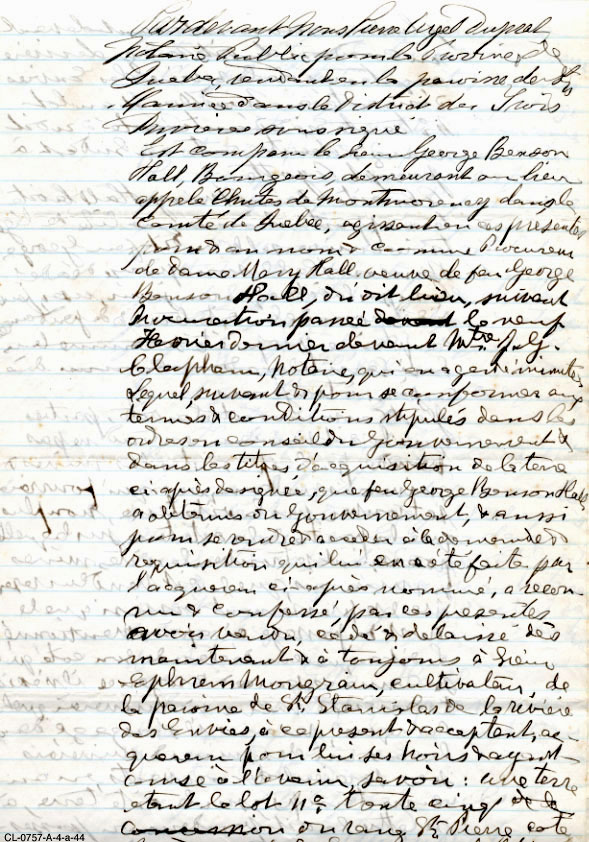 Pardevant Nous Pierre Ugel Dupret
Notaire Public pour la Province de
Quebec, résidant en la paroisse de St
Maurice dans le District des Trois
Rivières soussigné
Est comparu le Sieur George Benson
Hall, Bourgeois, demeurant au lieu
appelé Chutes de Montmorency dans le
comté de Quebec, agissant en ces présentes
pour & au nom & comme Procureur
de dame Mary Hall veuve de feu George
Benson Hall, du dit lieu, suivant
Procuration passée devant le neuf
Fevrier dernier devant Mtre
Clapham, Notaire, qui en a gardé minute,
Lequel, suivant & pour se conformer aux
termes & conditions stipulés dans les
ordres en conseil du Gouvernement &
dans les titres d'acquisition de la terre
ci après designée, que feu George Benson Hall
a obtenus du Gouvernement, & aussi
pour se rendre & acceder à la demande &
requisition qui lui en a été faite par
l'acquereur ci après nommé, a recon-
nu & confessé, par ces presentes
avoir vendu, cédé & délaissé dès
maintenant & à toujours à Sieur
Ephrem Mongrain, cultivateur, de
la paroisse de St. Stanislas de la rivière
des Envies, à ce present & acceptant, ac-
quereur pour lui ses hoirs & ayant
cause à l'avenir, savoir : une terre
étant le lot No. trente cinq de la
concession du rang St. Pierre coté
CL-0757-A-4-a-44